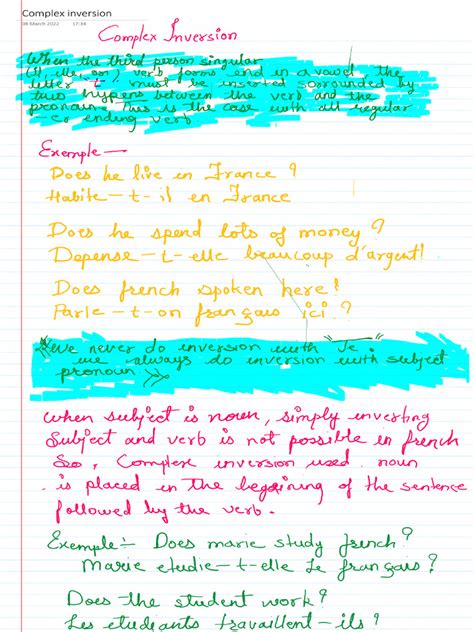 Complex inversion
08 March 2022 17:34
Complex Inversion
When the third person singular
(Il, elle, on) verb forms end in a vowel, the
letter "t" must be inserted sorrounded by
two hypens between the verb and the
pronoun. This is the case with all regular
-er ending verb
Exemple —
Does he live in France ?
Habite-t-il en France
Does he spend lots of money ?
Depense-t-elle beaucoup d'argent!
Does french spoken here!
Parle-t-on français ici ?
We never do inversion with "Je"
we always do inversion with subject
pronoun
when subject is noun, simply inverting
Subject and verb is not possible in french
So, Complex inversion used. noun
is placed in the begaining of the sentence
followed by the verb.
Exemple:- Does marie study french ?
Marie etudie-t-elle Le français ?
Does the student work ?
Les etudeants travaillent-ils ?